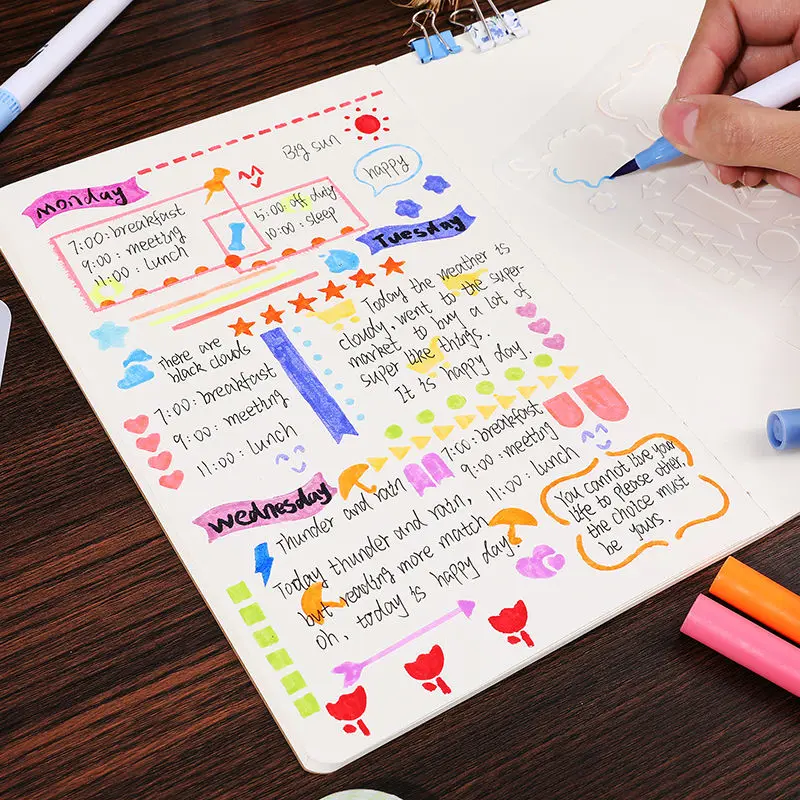 Big sun
happy
monday
7:00: breakfast
9:00: meeting
11:00: lunch
15:00: off duty
10:00: sleep
Tuesday
Today the weather is
cloudy, went to the super-
market to buy a lot of
super like things.
It is happy day.
There are
black clouds
7:00: breakfast
9:00: meeting
11:00: lunch
wednesday
Thunder and rain
7:00: breakfast
9:00: meeting
11:00: lunch
Today thunder and rain,
but reading more match
oh, today is happy day.
You cannot live your
life to please other,
the choice must
be yours.